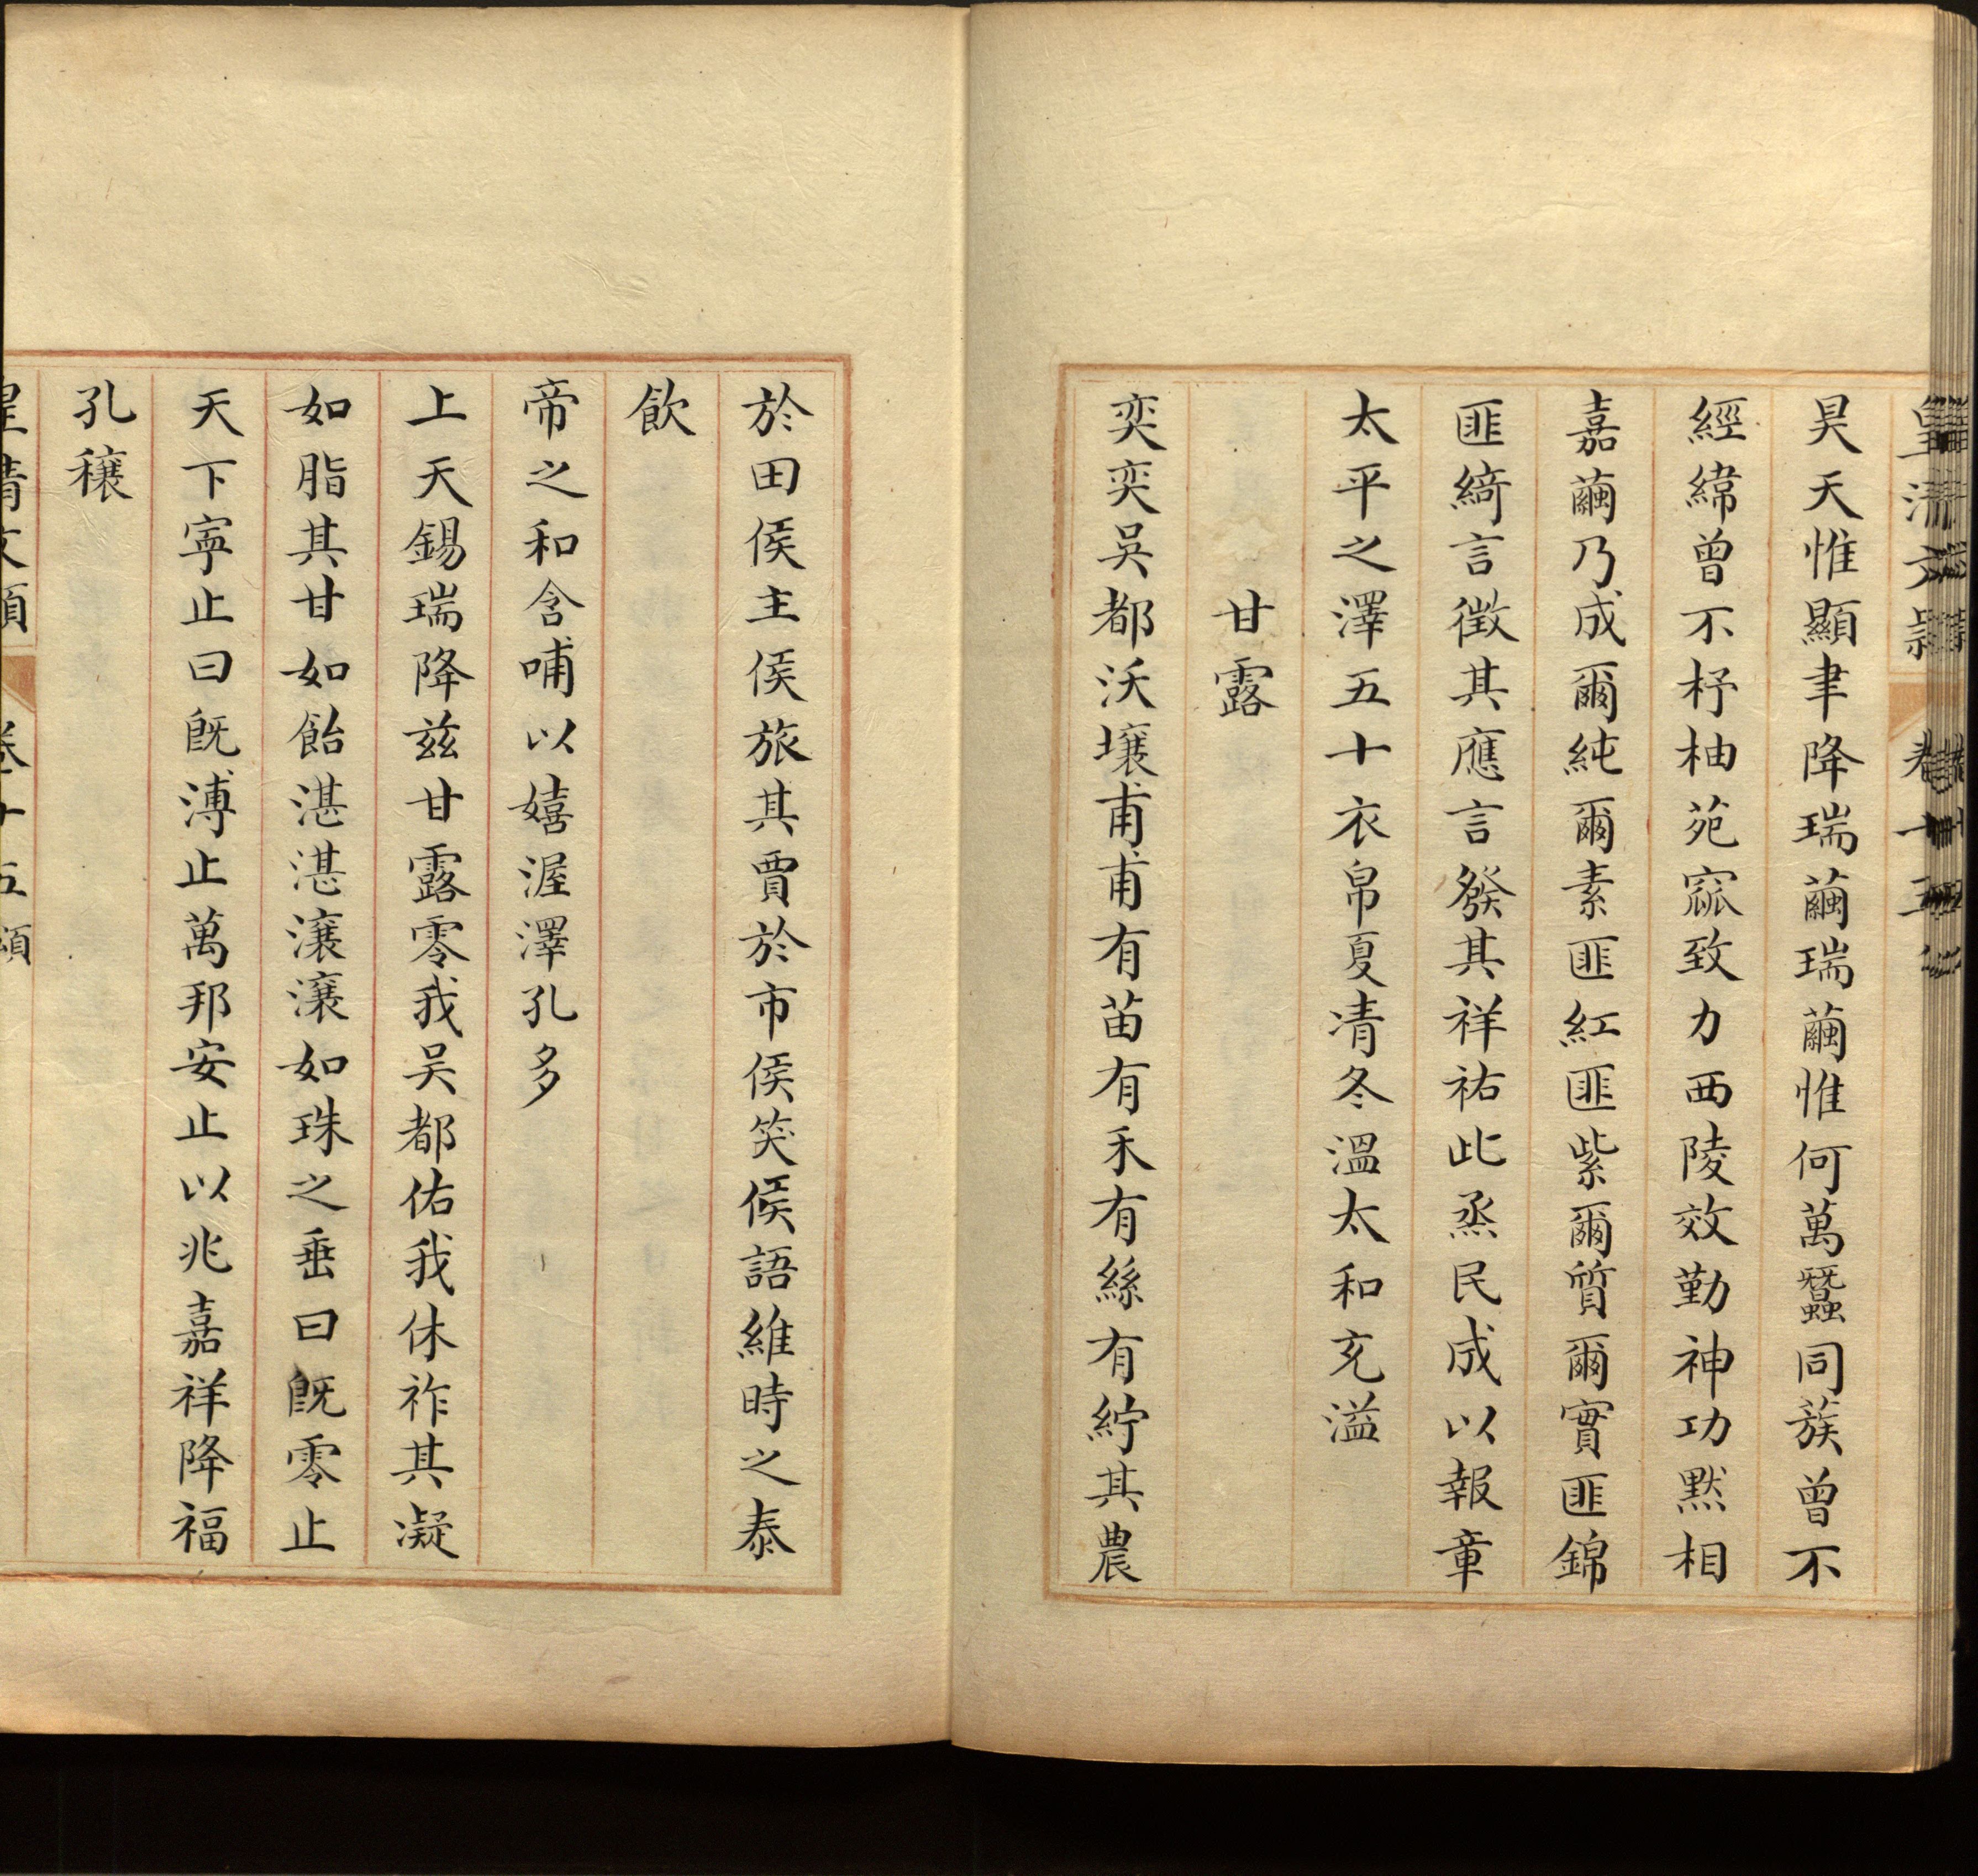 皇清文穎 卷十五 頌
昊天惟顯聿降瑞繭瑞繭惟何萬蠶同蔟曾不
經緯曾不杼柚苑窳致力西陵效勤神功默相
嘉繭乃成爾純爾素匪紅匪紫爾質爾實匪錦
匪綺言徴其應言發其祥祐此烝民成以報章
太平之澤五十衣帛夏凊冬溫太和充溢
甘露
奕奕吳都沃壤甫甫有苗有禾有絲有紵其農
於田侯主侯旅其賈於市侯笑侯語維時之泰
飲
帝之和含哺以嬉渥澤孔多
上天錫瑞降兹甘露零我吴都佑我休祚其凝
如脂其甘如飴湛湛瀼瀼如珠之垂曰旣零止
天下寜止曰旣溥止萬邦安止以兆嘉祥降福
孔穰
皇清文穎 卷十五 頌